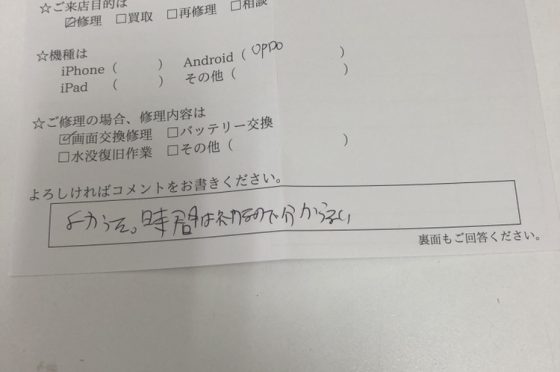 ☆ご来店目的は
☑修理 □買取 □再修理 □相談
☆機種は
iPhone（ ） Android（oppo ）
iPad（ ） その他（ ）
☆ご修理の場合、修理内容は
☑画面交換修理 □バッテリー交換
□水没復旧作業 □その他（ ）
よろしければコメントをお書きください。
よかった。時間は初めてなので分からない
裏面もご回答ください。